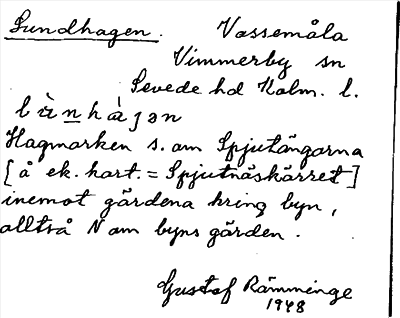 Lundhagen. Vassemåla
Vimmerby sn
Sevede hd Kalm. l.
Hagmarken s. om Spjutängarna
[å ek. kart. = Spjutnäskärret]
inemot gärdena kring byn,
alltså N om byns gärden.
Gustaf Rämminge
1948